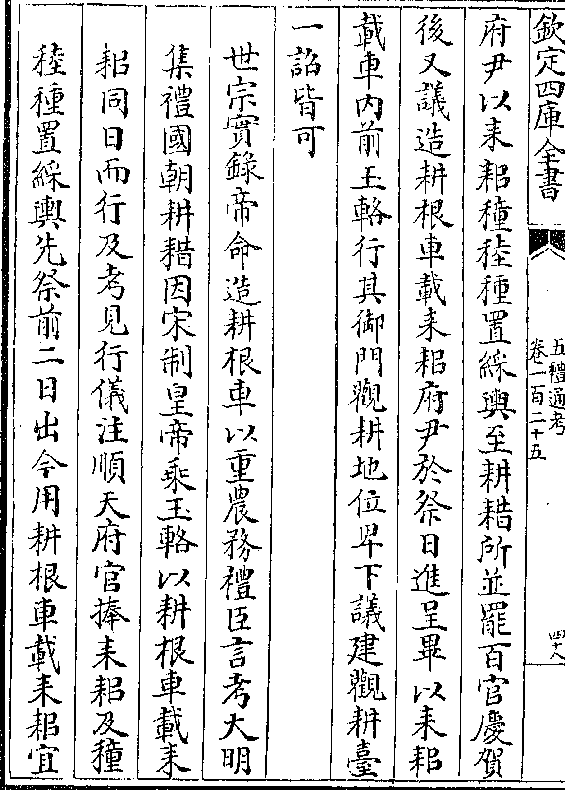 欽定四庫全書
五禮通考
卷一百二十五
四十八
府尹以耒耜穜稑種置綵輿至耕耤所並罷百官慶賀
後又議造耕根車載耒耜府尹於祭日進呈畢以耒耜
載車內前玉輅行其御門觀耕地位卑下議建觀耕臺
一詔皆可
世宗實錄帝命造耕根車以重農務禮臣言考大明
集禮國朝耕耤因宋制皇帝乘玉輅以耕根車載耒
耜同日而行及考見行儀注順天府官捧耒耜及穜
稑種置綵輿先祭前二日出今用耕根車載耒耜宜